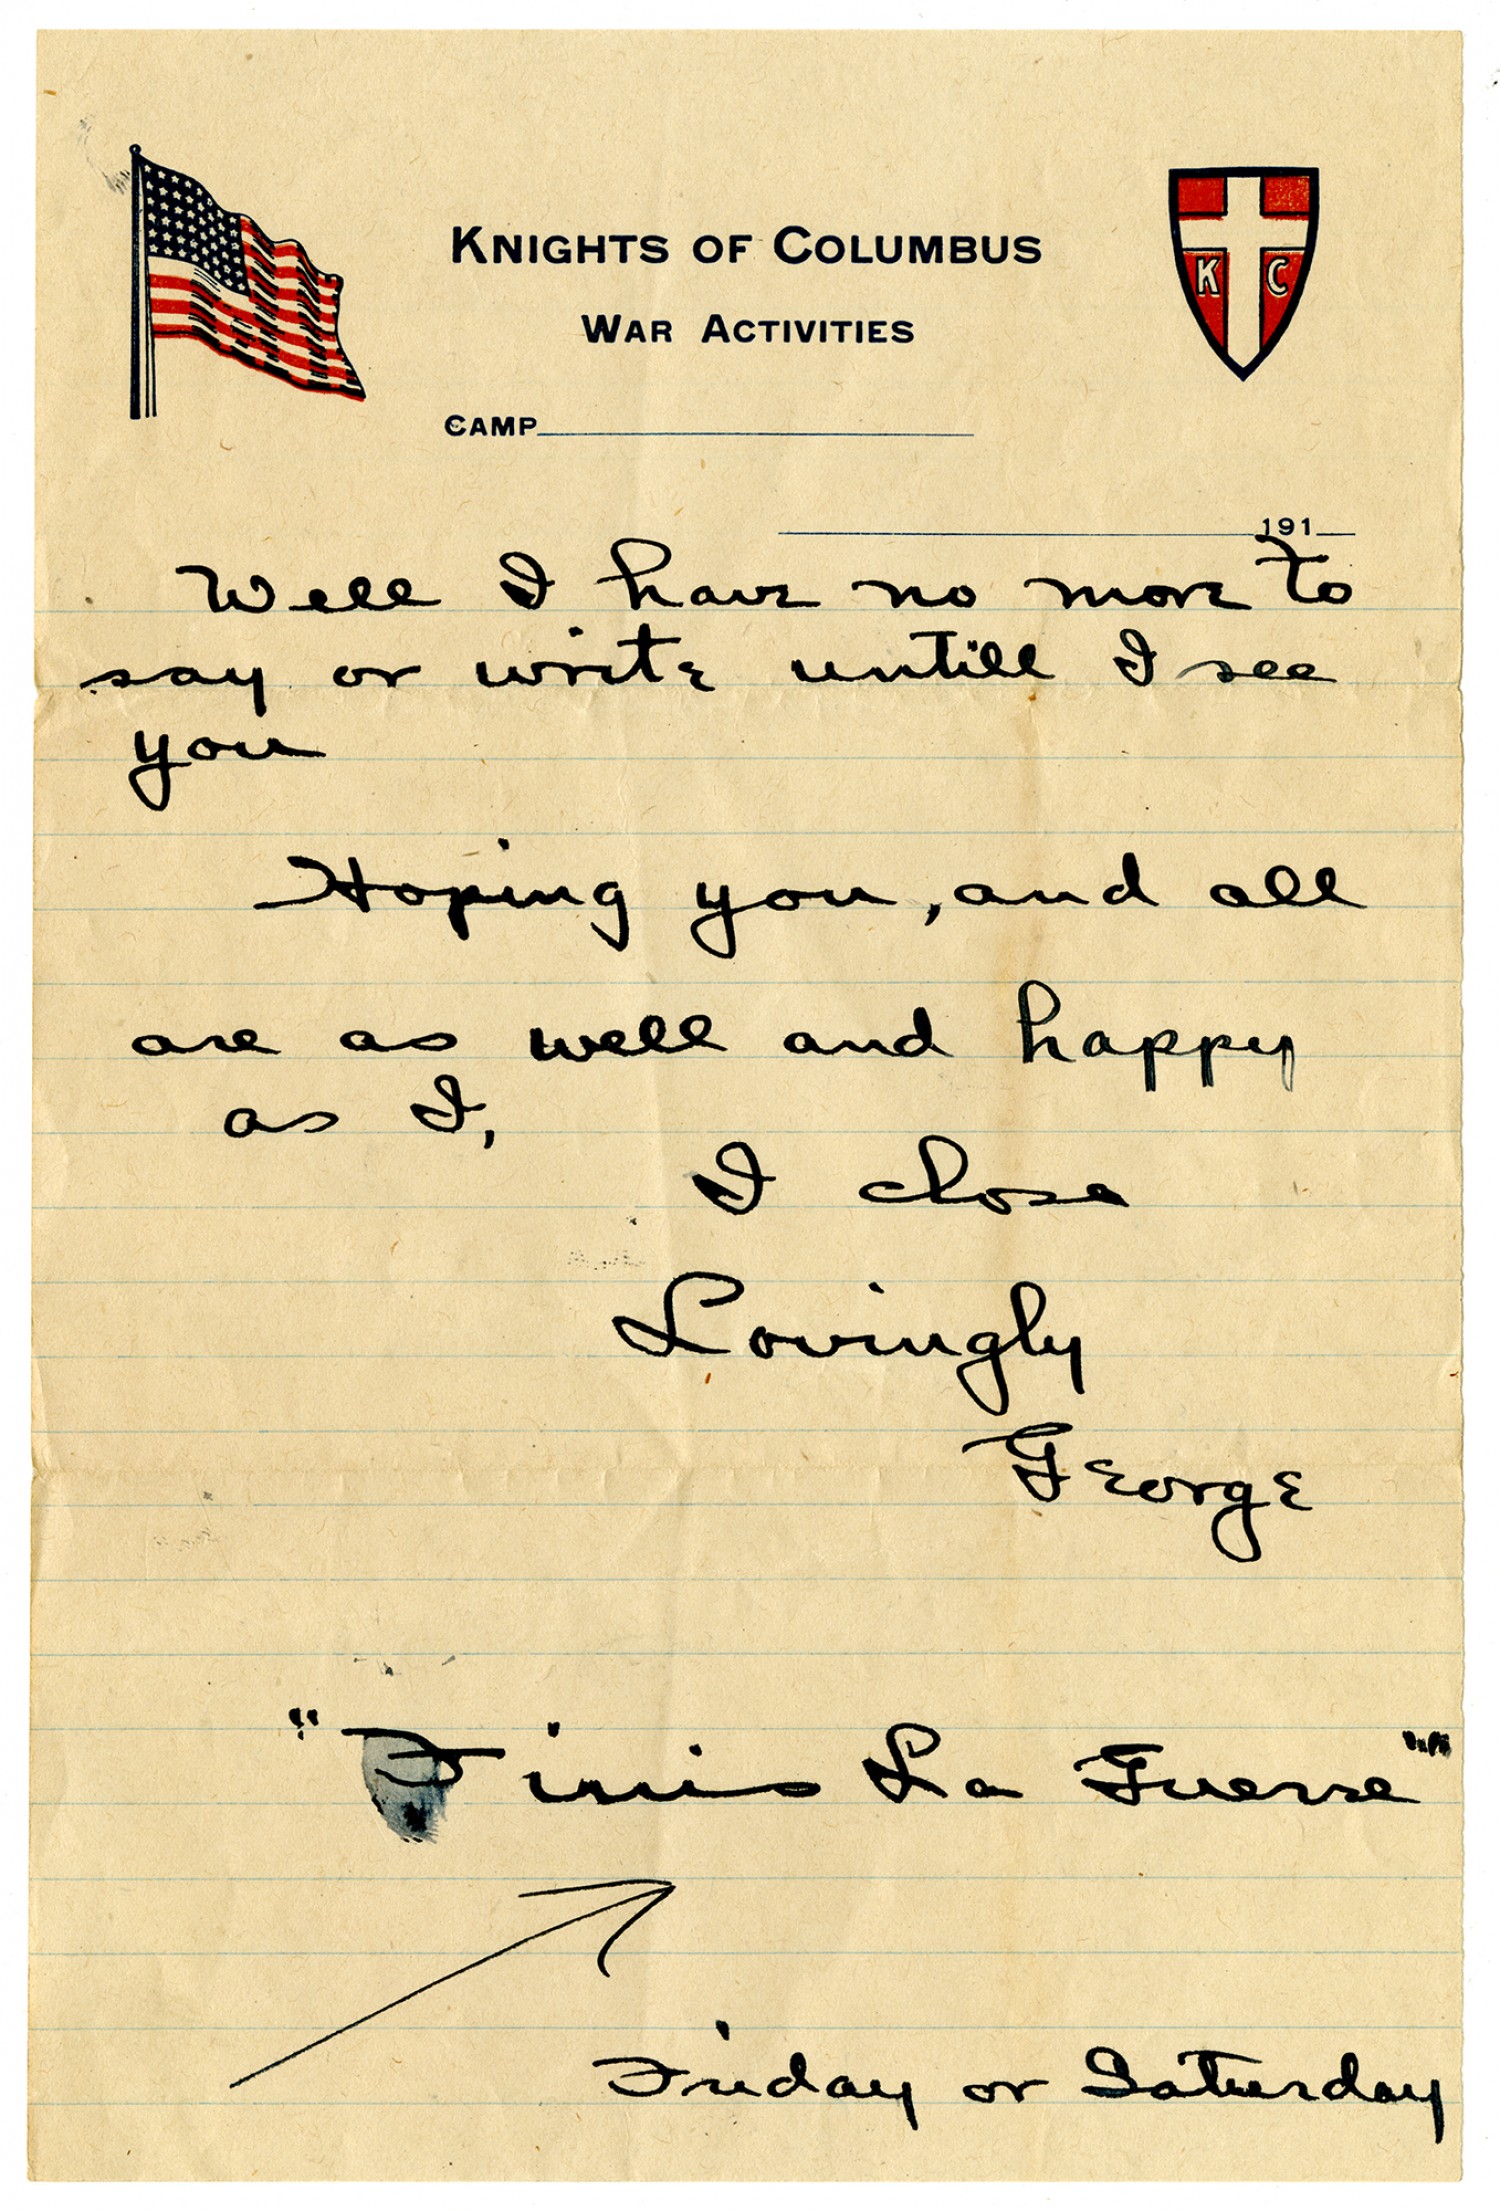 KNIGHTS OF COLUMBUS
WAR ACTIVITIES
K C
CAMP
191
Well I have no more to
say or write untill I see
you
Hoping you, and all
are as well and happy
as I,
I close
Lovingly
George
"Finis La Guerre"
Friday or Saturday